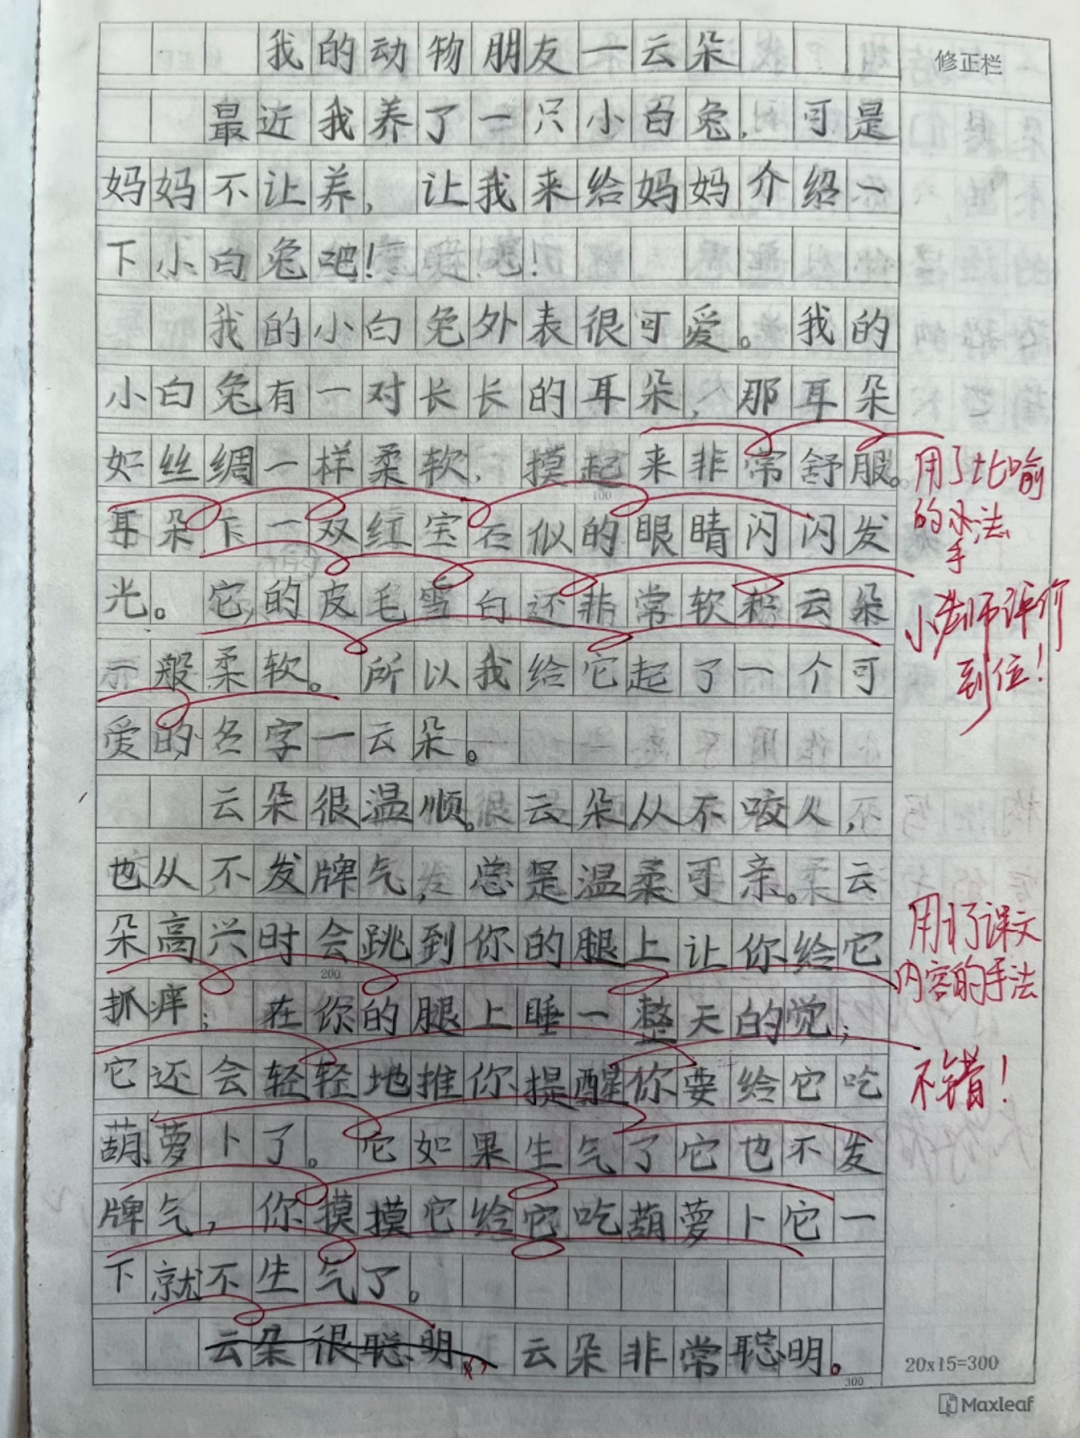 我的动物朋友一云朵
修正栏
最近我养了一只小白兔，可是
妈妈不让养，让我来给妈妈介绍一
下小白兔吧！
我的小白兔外表很可爱。我的
小白兔有一对长长的耳朵，那耳朵
如丝绸一样柔软，摸起来非常舒服。
耳朵下一双红宝石似的眼睛闪闪发
光。它的皮毛雪白还非常软和云朵
一般柔软。所以我给它起了一个可
爱的名字一云朵。
云朵很温顺。云朵从不咬人，
也从不发牌气，总是温柔可亲。云
朵高兴时会跳到你的腿上让你给它
抓痒；在你的腿上睡一整天的觉；
它还会轻轻地推你提醒你要给它吃
葫萝卜了。它如果生气了它也不发
牌气，你摸摸它给它吃葫萝卜它一
下就不生气了。
云朵很聪明，云朵非常聪明。
用了比喻
的手法
小老师评价
到位！
用了课文
内容的手法
不错！
100
200
300
20x15=300
Maxleaf